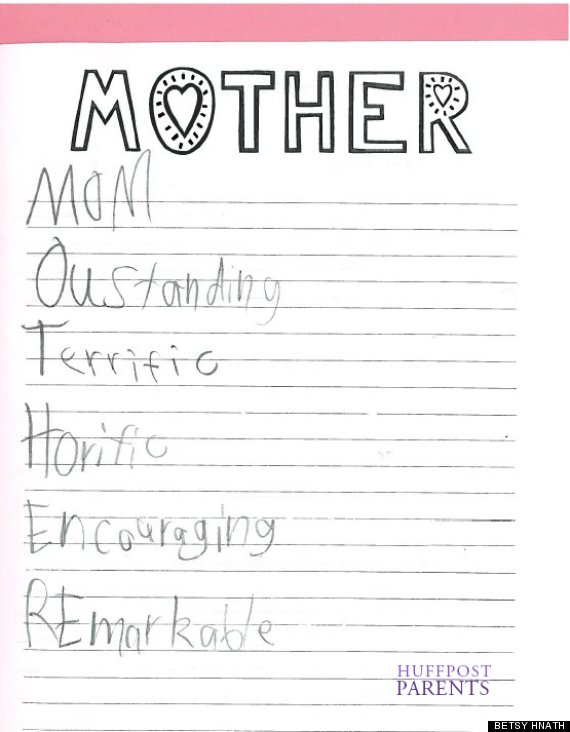 MOTHER
MOM
Oustanding
Terrific
Horific
Encouraging
REmarkable
HUFFPOST
PARENTS
BETSY HNATH